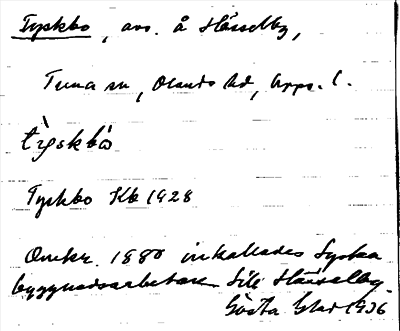 Tyskbo, avs. å Hässelby,
Tuna sn, Olands hd, Upps. l.
tỳskbó
Tyskbo Kb 1928
Omkr. 1880 inkallades tyska
byggnadsarbetare till Hässelby.
Gösta Glad 1936